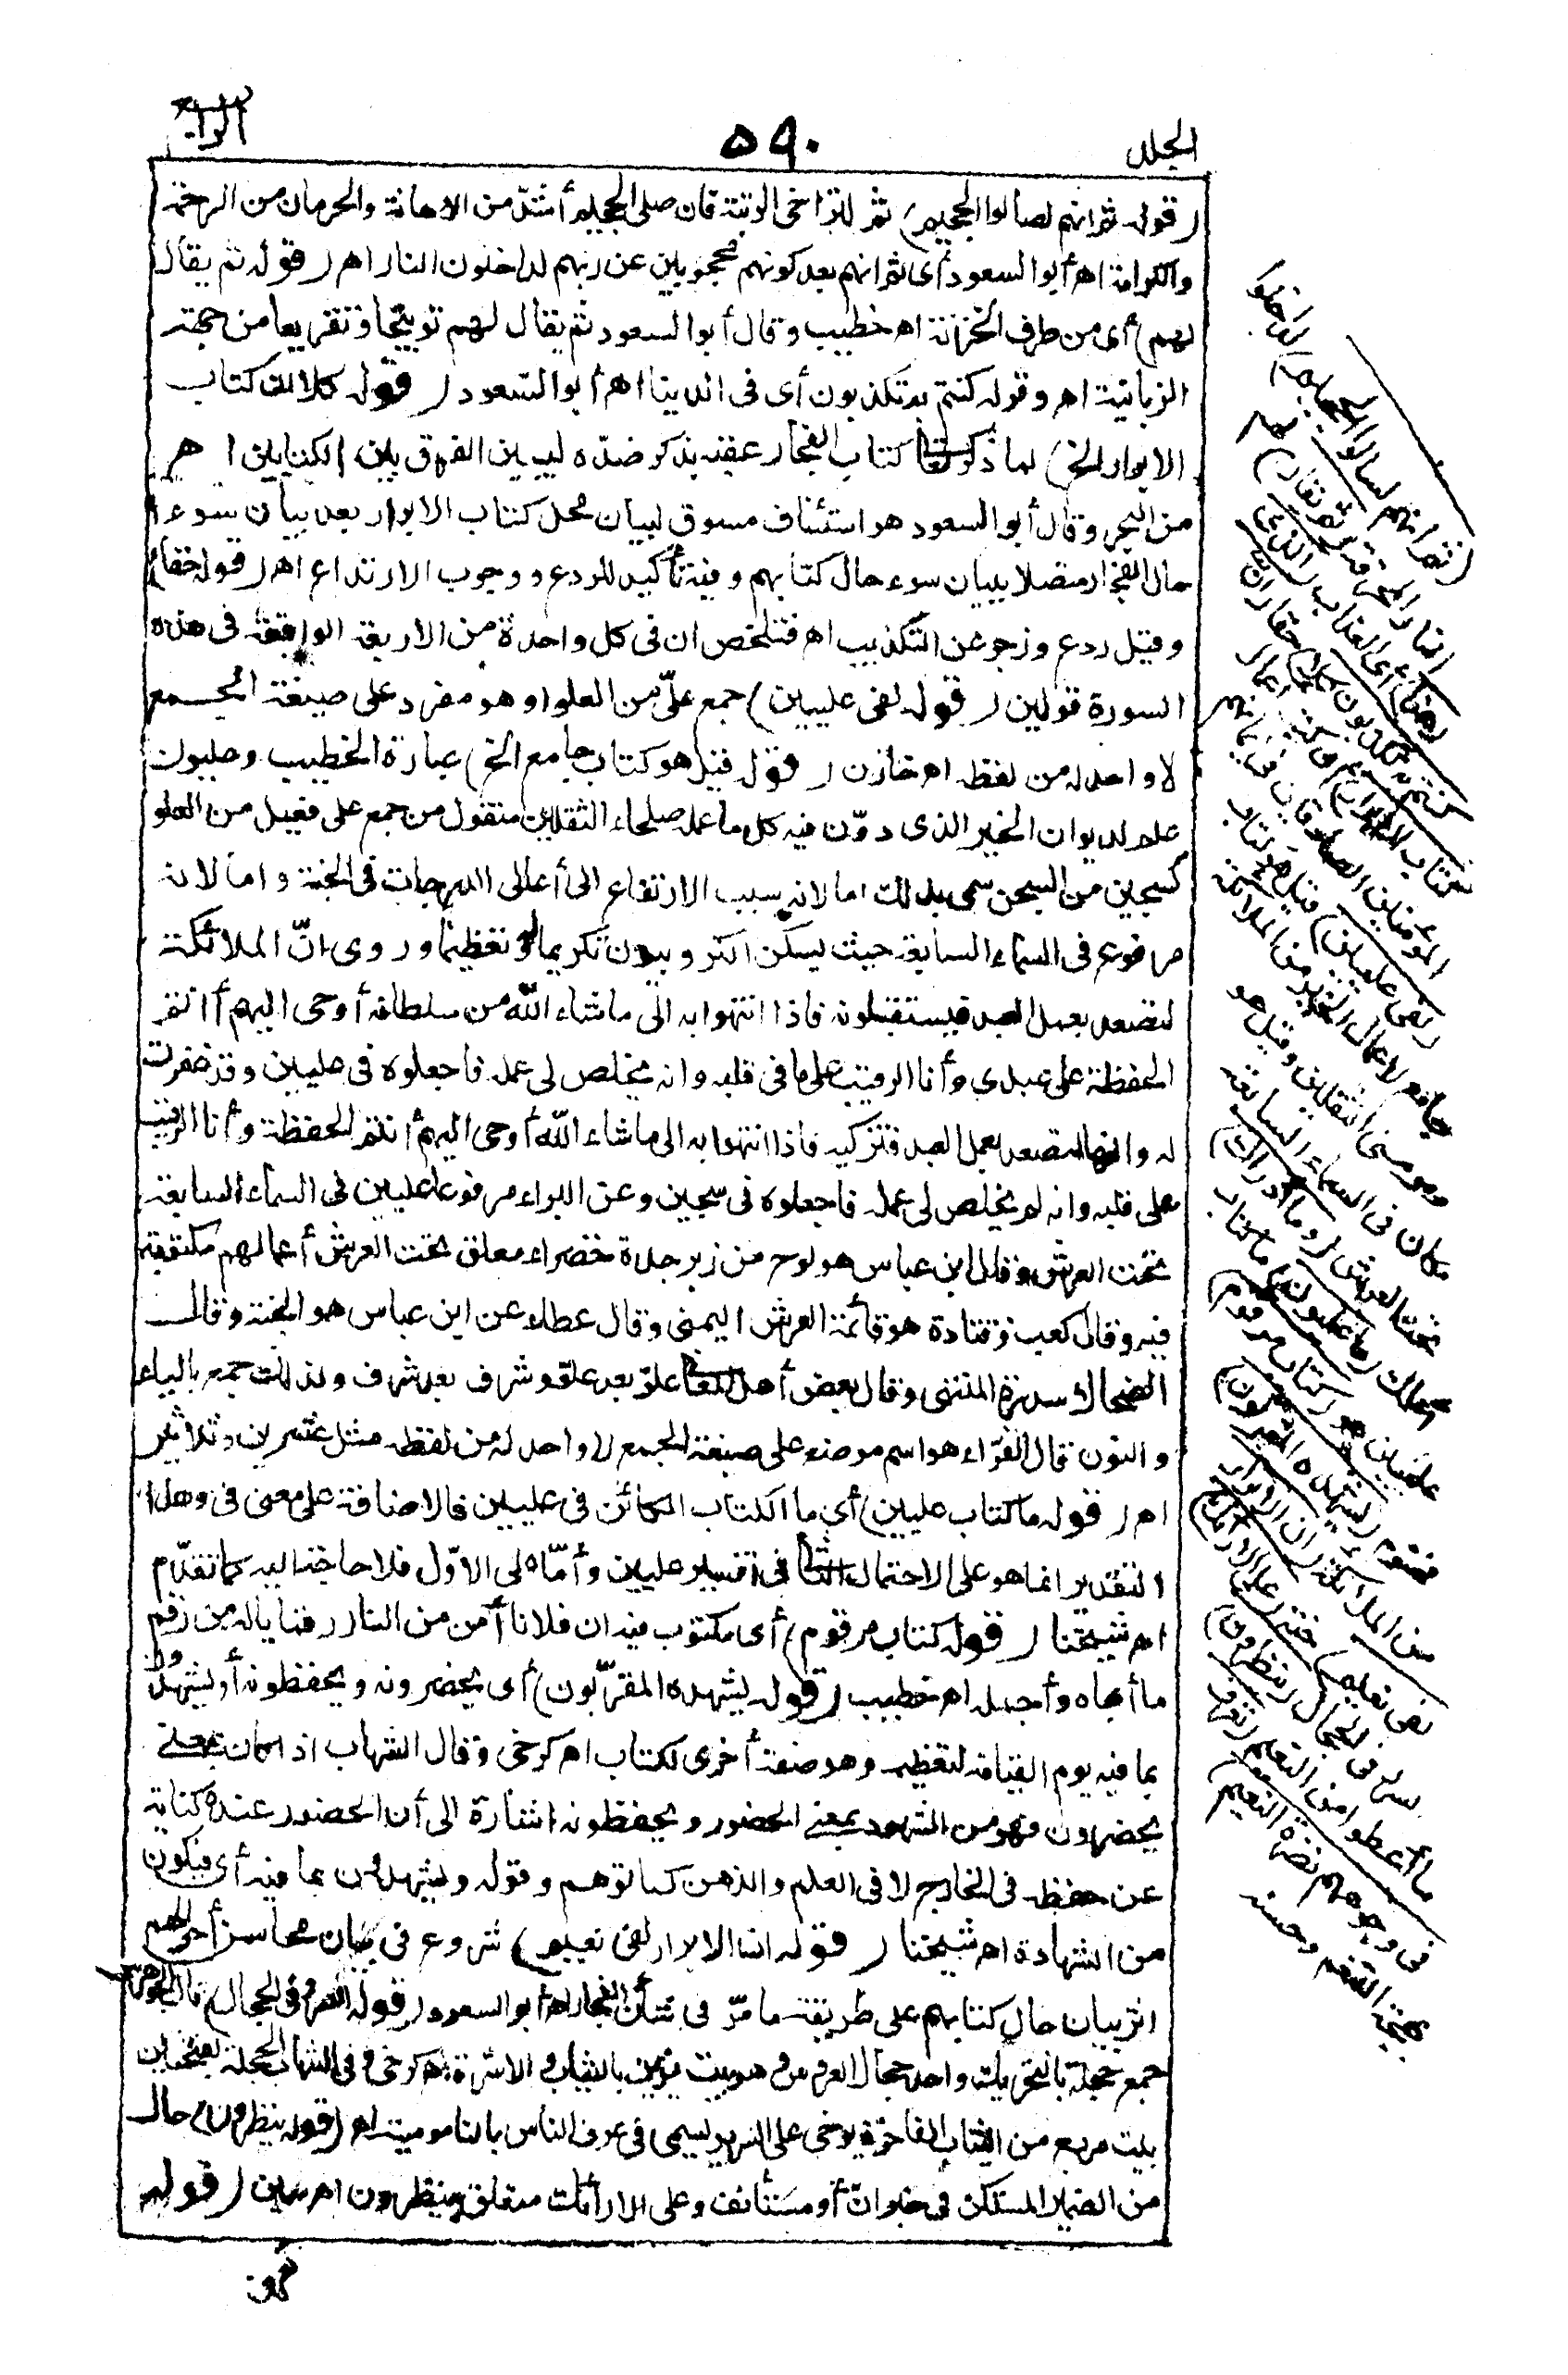 الجلد
٥٩٠
الرابع
(قوله ثم انهم لصالوا الجحيم) ثم للتراخى الرتبة فان صلى الجحيم أشدّ من الاهانة والحرمان من الرحمة
والكرامة اهـ أبوالسعود أى ثم انهم بعد كونهم محجوبين عن ربهم لداخلون النار اهـ (قوله ثم يقال
لهم) أى من طرف الخزنة اهـ خطيب وقال أبوالسعود ثم يقال لهم توبيخا وتقريعا من جهة
الزبانية اهـ وقوله كنتم به تكذبون أى فى الدنيا اهـ أبوالسعود (قوله كلا ان كتاب
الابرار الخ) لما ذكر كتاب الفجار عقبه بذكر ضدّه ليبين الفرق بين الكتابين اهـ
من البحر وقال أبوالسعود هو استئناف مسوق لبيان محل كتاب الابرار بعد بيان سوء
حال الفجار متصلا ببيان سوء حال كتابهم وفيه تأكيد للردع ووجوب الارتداع اهـ (قوله حقا)
وقيل ردع وزجر عن التكذيب اهـ فتلخص ان فى كل واحدة من الاربعة الواقعة فى هذه
السورة قولين (قوله لفى عليين) جمع علىّ من العلو او هو مفرد على صيغة الجمع
لا واحد له من لفظه اهـ خازن (قوله قيل هو كتاب جامع الخ) عبارة الخطيب وعليون
علم لديوان الخير الذى دوّن فيه كل ما عمله صلحاء الثقلين منقول من جمع على فعيل من العلو
كسجين من السجن سمى بذلك اما لانه سبب الارتفاع الى أعالى الدرجات فى الجنة واما لانه
مرفوع فى السماء السابعة حيث يسكن الكروبيون تكريما له وتعظيما وروى انّ الملائكة
لتصعد بعمل العبد فيستقبلونه فاذا انتهوا به الى ماشاء الله من سلطانه أوحى اليهم أانتم
الحفظة على عبدى وأنا الرقيب على ما فى قلبه وانه يخلص لى عمله فاجعلوه فى عليين وقد غفرت
له وانها لتصعد بعمل العبد فتزكيه فاذا انتهوا به الى ماشاء الله أوحى اليهم أانتم الحفظة وأنا الرقيب
على قلبه وانه لم يخلص لى عمله فاجعلوه فى سجين وعن البراء مرفوعا عليين فى السماء السابعة
تحت العرش وقال ابن عباس هو لوح من زبرجدة خضراء معلق تحت العرش أعمالهم مكتوبة
فيه وقال كعب وقتادة هو قائمة العرش اليمنى وقال عطاء عن ابن عباس هو الجنة وقال
الضحاك سدرة المنتهى وقال بعض أهل المعانى علوّ بعد علوّ وشرف بعد شرف ولذلك جمع بالياء
والنون قال الفرّاء هو اسم موضع على صيغة الجمع لا واحد له من لفظه مثل عشرين وثلاثين
اهـ (قوله ما كتاب عليين) أى ما الكتاب الكائن فى عليين فالاضافة على معنى فى وهذا
التقدير انما هو على الاحتمال الثانى فى تفسير عليين وأمّا على الاوّل فلا حاجة اليه كما تقدّم
اهـ شيخنا (قوله كتاب مرقوم) أى مكتوب فيه ان فلانا أمن من النار رقما ياله من رقم
ما أبهاه وأجمله اهـ خطيب (قوله يشهده المقرّبون) أى يحضرونه ويحفظونه أو يشهدون
بما فيه يوم القيامة لتعظيمه وهو صفة أخرى لكتاب اهـ كرخى وقال الشهاب اذا كان بمعنى
يحضرون فهو من الشهود بمعنى الحضور ويحفظونه اشارة الى أن الحضور عنده كناية
عن حفظه فى الخارج لا فى العلم والذهن كما توهم وقوله ويشهدون بما فيه أى فيكون
من الشهادة اهـ شيخنا (قوله ان الابرار لفى نعيم) شروع فى بيان محاسن أحوالهم
اثر بيان حال كتابهم على طريقة ما مرّ فى شأن الفجار اهـ أبوالسعود (قوله السرر فى الحجال) قال الجوهرى
جمع حجلة بالتحريك واحد حجال العروس وهو بيت يزين بالثياب والاسرة اهـ كرخى وفى الشهاب الحجلة بفتحتين
بيت مربع من الثياب الفاخرة يرخى على السرير يسمى فى عرف الناس بالناموسية اهـ (قوله ينظرون) حال
من الضمير المستكن فى خبر انّ أو مستأنف وعلى الارائك متعلق بينظرون اهـ سمين (قوله
(ثم انهم لصالوا الجحيم) لداخلو
النار المحرقة (ثم يقال) لهم
(هذا) أى العذاب (الذى
كنتم به تكذبون كلا) حقا (ان
كتاب الابرار) أى كتب أعمال
المؤمنين الصادقين فى ايمانهم
(لفى عليين) قيل هو كتاب
جامع لاعمال الخير من الملائكة
ومؤمنى الثقلين وقيل هو
مكان فى السماء السابعة
تحت العرش (وما أدراك)
أعلمك (ما عليون) ما كتاب
عليين هو (كتاب مرقوم)
مختوم (يشهده المقربون)
من الملائكة (ان الابرار
لفى نعيم) جنة (على الارائك)
السرر فى الحجال (ينظرون)
ما أعطوا من النعيم (تعرف
فى وجوههم نضرة النعيم)
بهجة التنعم وحسنه